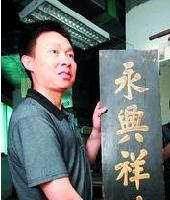 永興祥